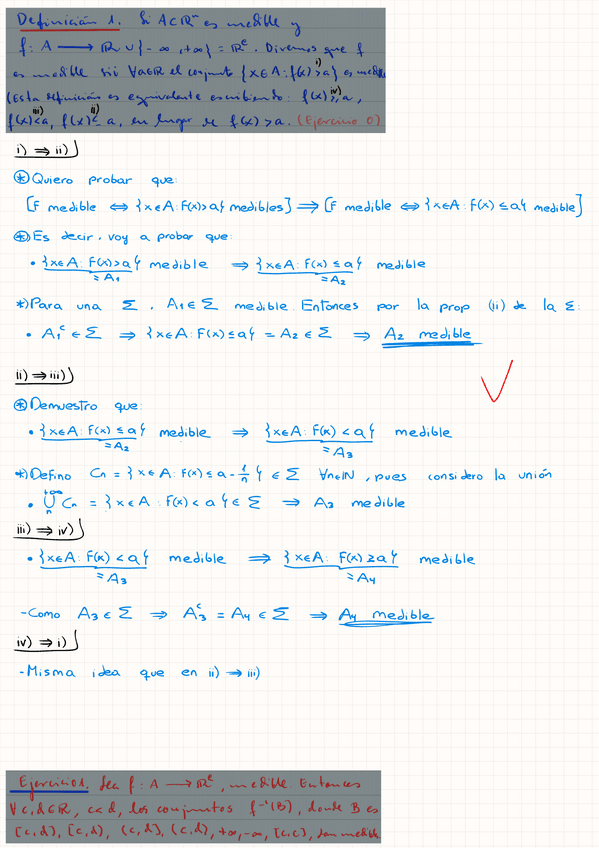 Definición 1. Si A⊂ℝⁿ es medible y
f: A ⟶ ℝ ∪ {-∞, +∞} = ℝᵉ. Diremos que f
es medible sii ∀a∈ℝ el conjunto {x∈A: f(x) > a} es medible
i)
(Esta definición es equivalente escribiendo: f(x) ≥ a,
iv)
f(x)<a, f(x)≤ a, en lugar de f(x) > a. (Ejercicio 0)
iii) ii)
i) ⇒ ii)
⊛ Quiero probar que:
[F medible ⇔ {x∈A: F(x)>a} medibles] ⇒ [F medible ⇔ {x∈A: F(x) ≤ a} medible]
⊛ Es decir, voy a probar que:
• {x∈A: F(x)>a} medible ⇒ {x∈A: F(x) ≤ a} medible
=A₁ =A₂
*) Para una Σ, A₁∈Σ medible. Entonces por la prop (ii) de la Σ:
• A₁ᶜ ∈ Σ ⇒ {x∈A: F(x)≤a} = A₂ ∈ Σ ⇒ A₂ medible
ii) ⇒ iii)
⊛ Demuestro que:
• {x∈A: F(x) ≤ a} medible ⇒ {x∈A: F(x) < a} medible
=A₂ =A₃
*) Defino Cn = {x∈A: F(x) ≤ a - 1/n} ∈ Σ ∀n∈ℕ, pues considero la unión
• ⋃ₙ^{+∞} Cn = {x∈A: F(x) < a} ∈ Σ ⇒ A₃ medible
iii) ⇒ iv)
• {x∈A: F(x) < a} medible ⇒ {x∈A: F(x) ≥ a} medible
=A₃ =A₄
- Como A₃ ∈ Σ ⇒ A₃ᶜ = A₄ ∈ Σ ⇒ A₄ medible
iv) ⇒ i)
- Misma idea que en ii) → iii)
Ejercicio 1. Sea f: A ⟶ ℝᵉ, medible. Entonces
∀ c,d∈ℝ, c<d, los conjuntos f⁻¹(B), donde B es
[c,d], [c,d), (c,d], (c,d), +∞, -∞, [c,c], son medible